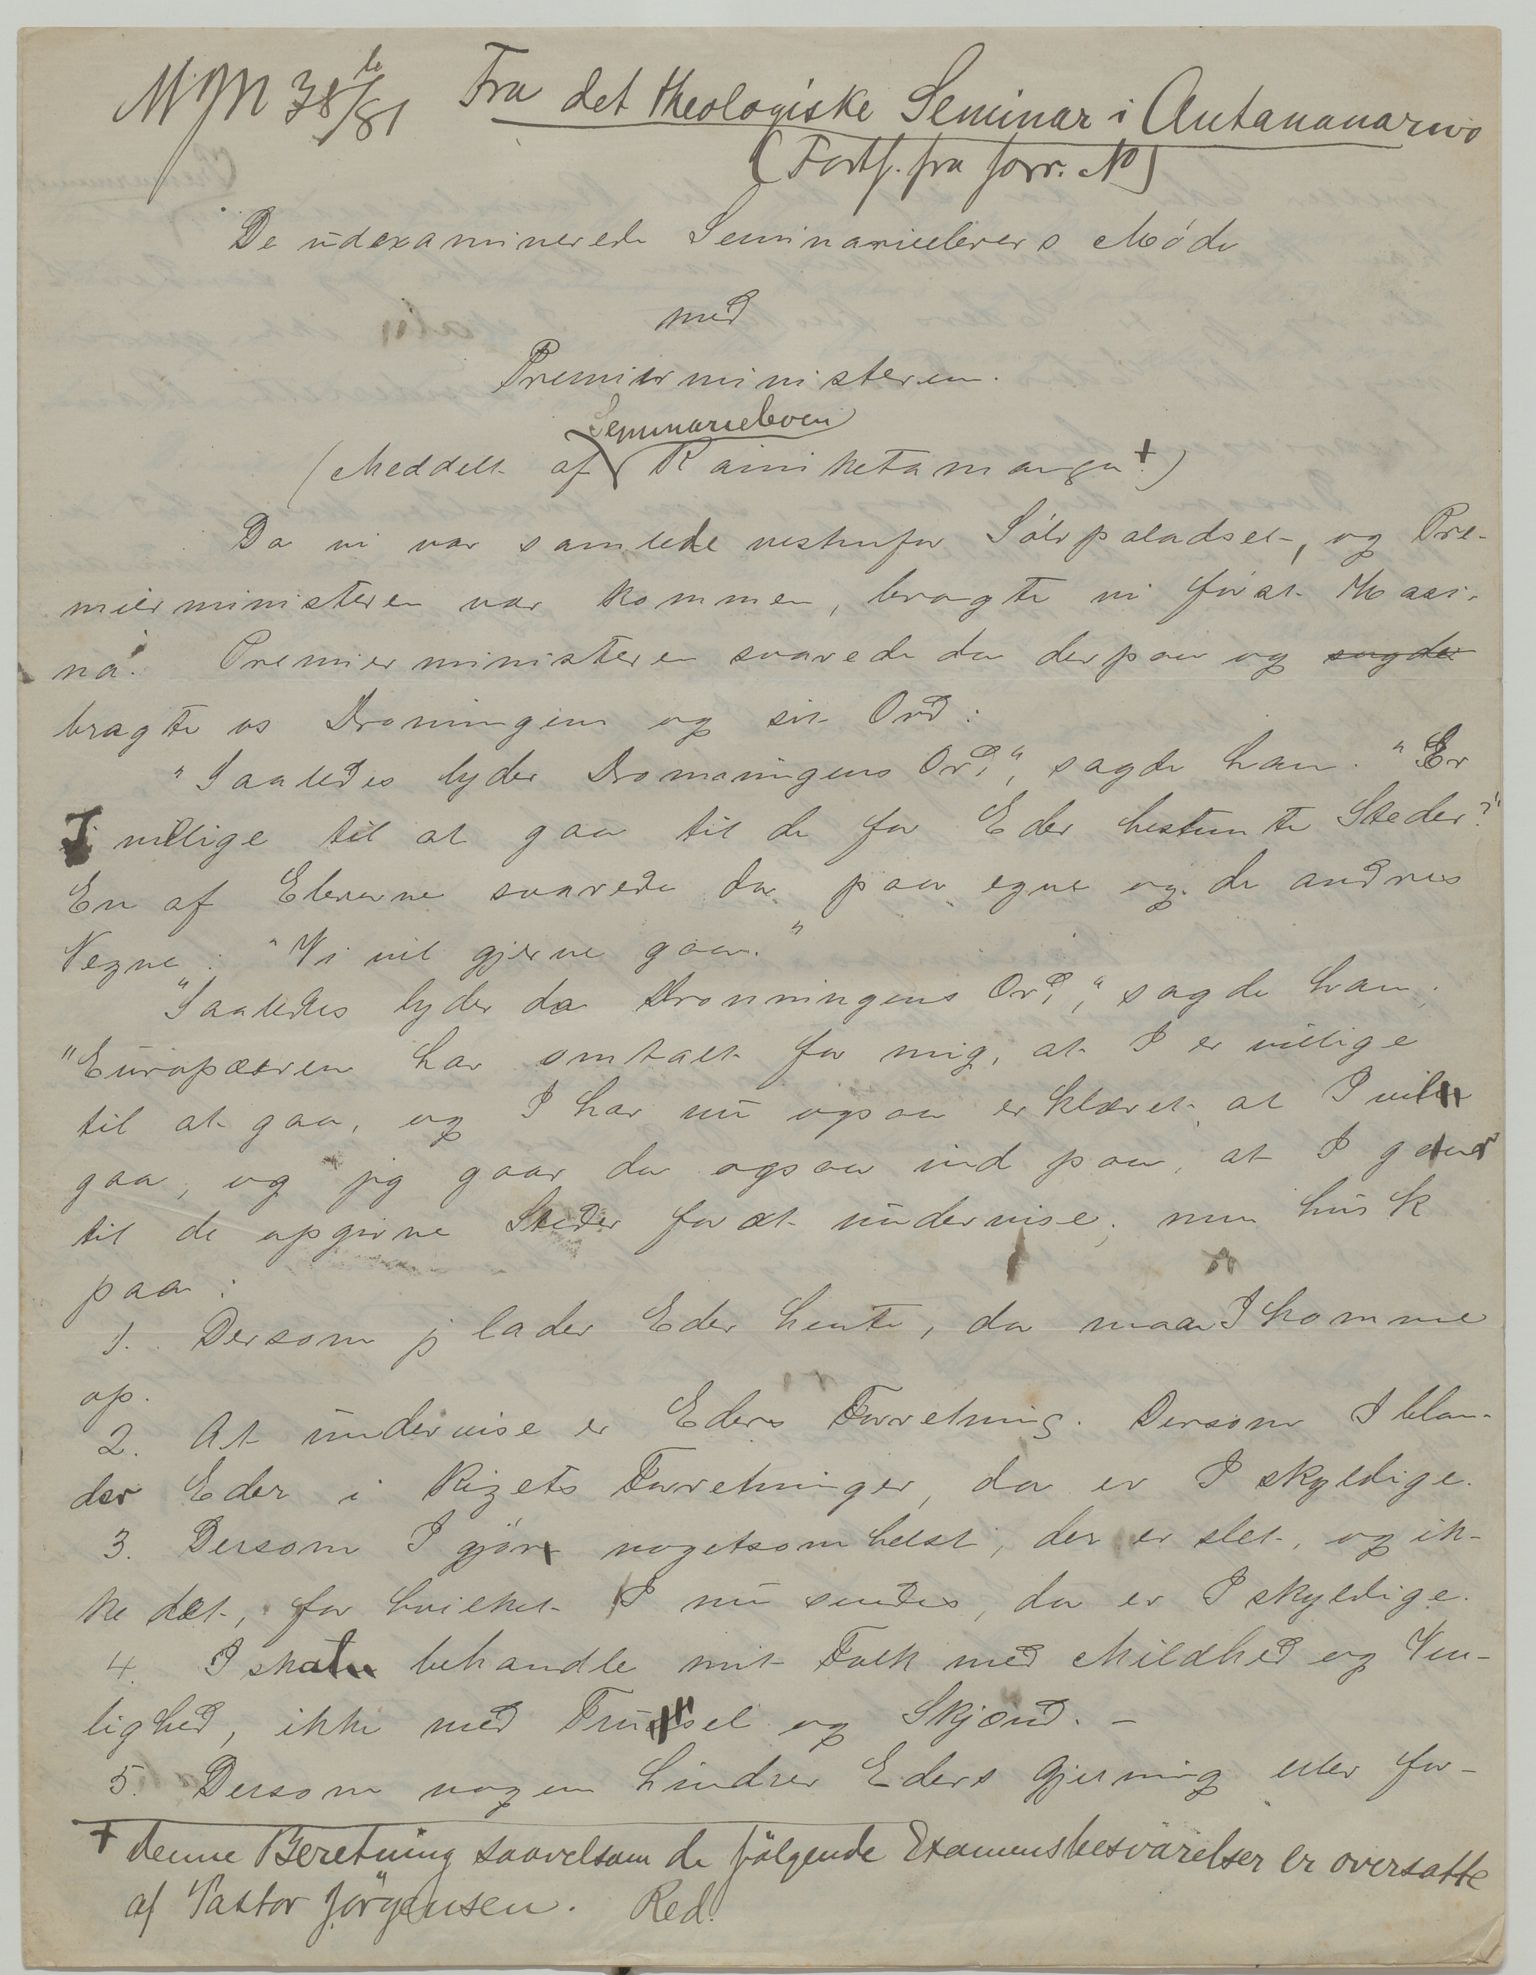 NMM 38 b/81 Fra det theologiske Seminar i Antananarivo
(Fortf. fra forr. No)
De udexaminerede Seminarielevers Møde
med
Premierministeren.
Seminarieleven
(Meddelt af Rainiketamanga +)
Da vi var samlede vestenfor Sølvpaladset, og Pre-
mierministeren var kommen, bragte vi først Hasi-
na. Premierministeren svarede da derpaa og sagde
bragte os Dronningens og sit Ord:
"Saaledes lyder Dronningens Ord", sagde han. "Er
I villige til at gaa til de for Eder bestemte Steder?"
En af Eleverne svarede da paa egne og de andres
Vegne: "Vi vil gjerne gaa."
"Saaledes lyder da Dronningens Ord", sagde han,
"Europæeren har omtalt for mig, at I er villige
til at gaa, og I har nu ogsaa erklæret, at I vil
gaa, og jeg gaar da ogsaa ind paa, at I gaar
til de opgivne Steder for at undervise; men husk
paa:
1. Dersom jeg lader Eder hente, da maa I komme
op.
2. At undervise er Eders Forretning. Dersom I blan-
der Eder i Rigets Forretninger, da er I skyldige.
3. Dersom I gjør nogetsomhelst, der er slet, og ik-
ke det, for hvilket I nu sendes, da er I skyldige.
4. I skal behandle mit Folk med Mildhed og Ven-
lighed, ikke med Trusel og Skjænd. -
5. Dersom nogen hindrer Eders Gjerning eller for-
+ denne Beretning saavelsom de følgende Examensbesvarelser er oversatte
af Pastor Jørgensen. Red.